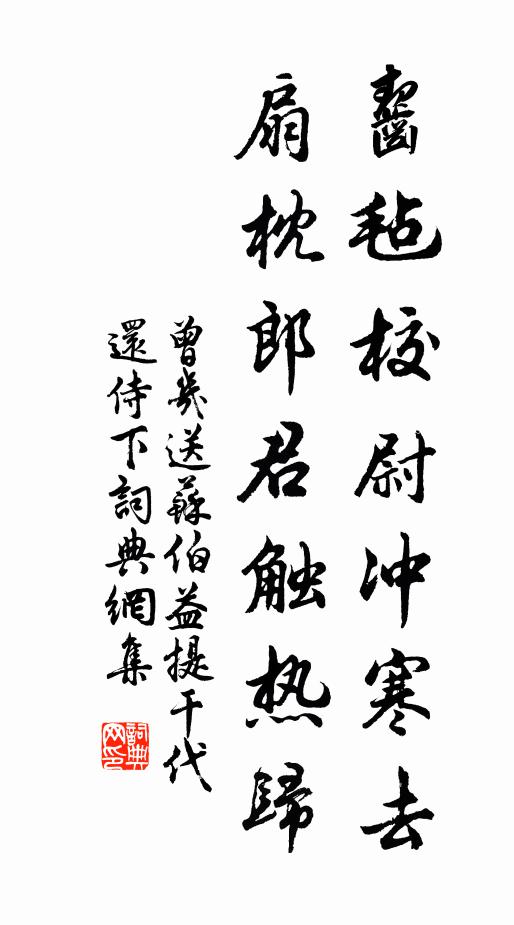 齧毡校尉冲寒去
扇枕郎君触热歸
曾幾送蘇伯益提干代
還侍下詞典網集
詞典网印